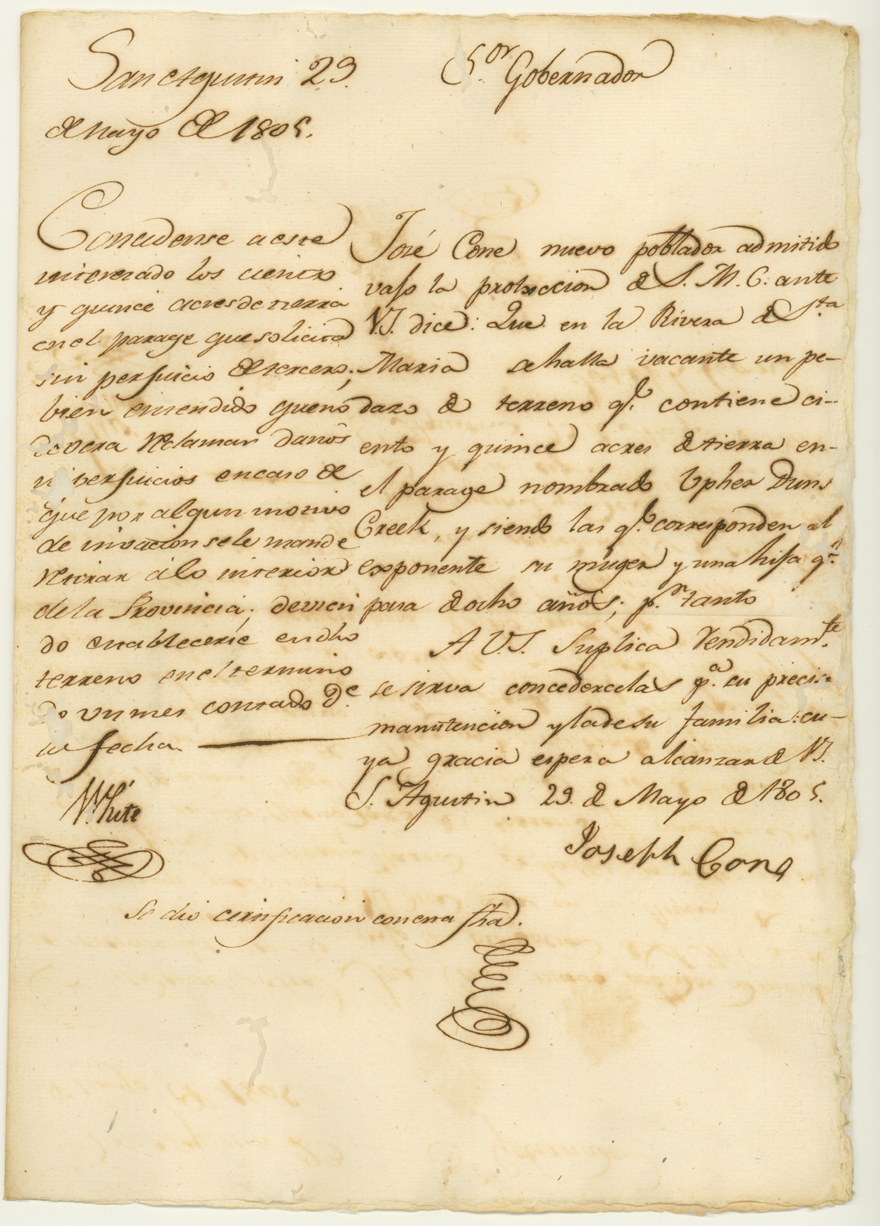 San Agustin 29.
de Mayo de 1805.
Concedense a este
interesado los ciento
y quince acres de tierra
en el parage que solicita
sin perjuicio de tercero;
bien entendido que no
devera reclamar daños
ni perjuicios en caso de
que por algun motivo
de invacion se le mande
retirar á lo interior
de la Provincia; devien
do establecerse en dho
terreno en el termino
de un mes contado de
la fecha.
White
S.or Gobernador
José Cone nuevo poblador admitido
vajo la proteccion de S. M. C. ante
VS. dice: Que en la Rivera de S.ta
Maria se halla vacante un pe-
dazo de terreno q.e contiene ci-
ento y quince acres de tierra en
el parage nombrado Upher Duns
Creek, y siendo las q.e corresponden al
exponente su muger y una hija q.e
pasa de ocho años; p.r tanto
A VS. Suplica Rendidam.te
se sirva concedercelas p.a su precisa
manutencion y la de su familia: cu-
ya gracia espera alcanzar de VS.
S. Agustin 29. de Mayo de 1805.
Joseph Cone
Se dio certificacion con esta fha.